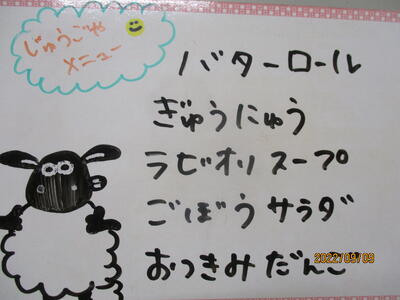 じゅうごや
メニュー
バターロール
ぎゅうにゅう
ラビオリスープ
ごぼうサラダ
おつきみだんご
2022/09/09